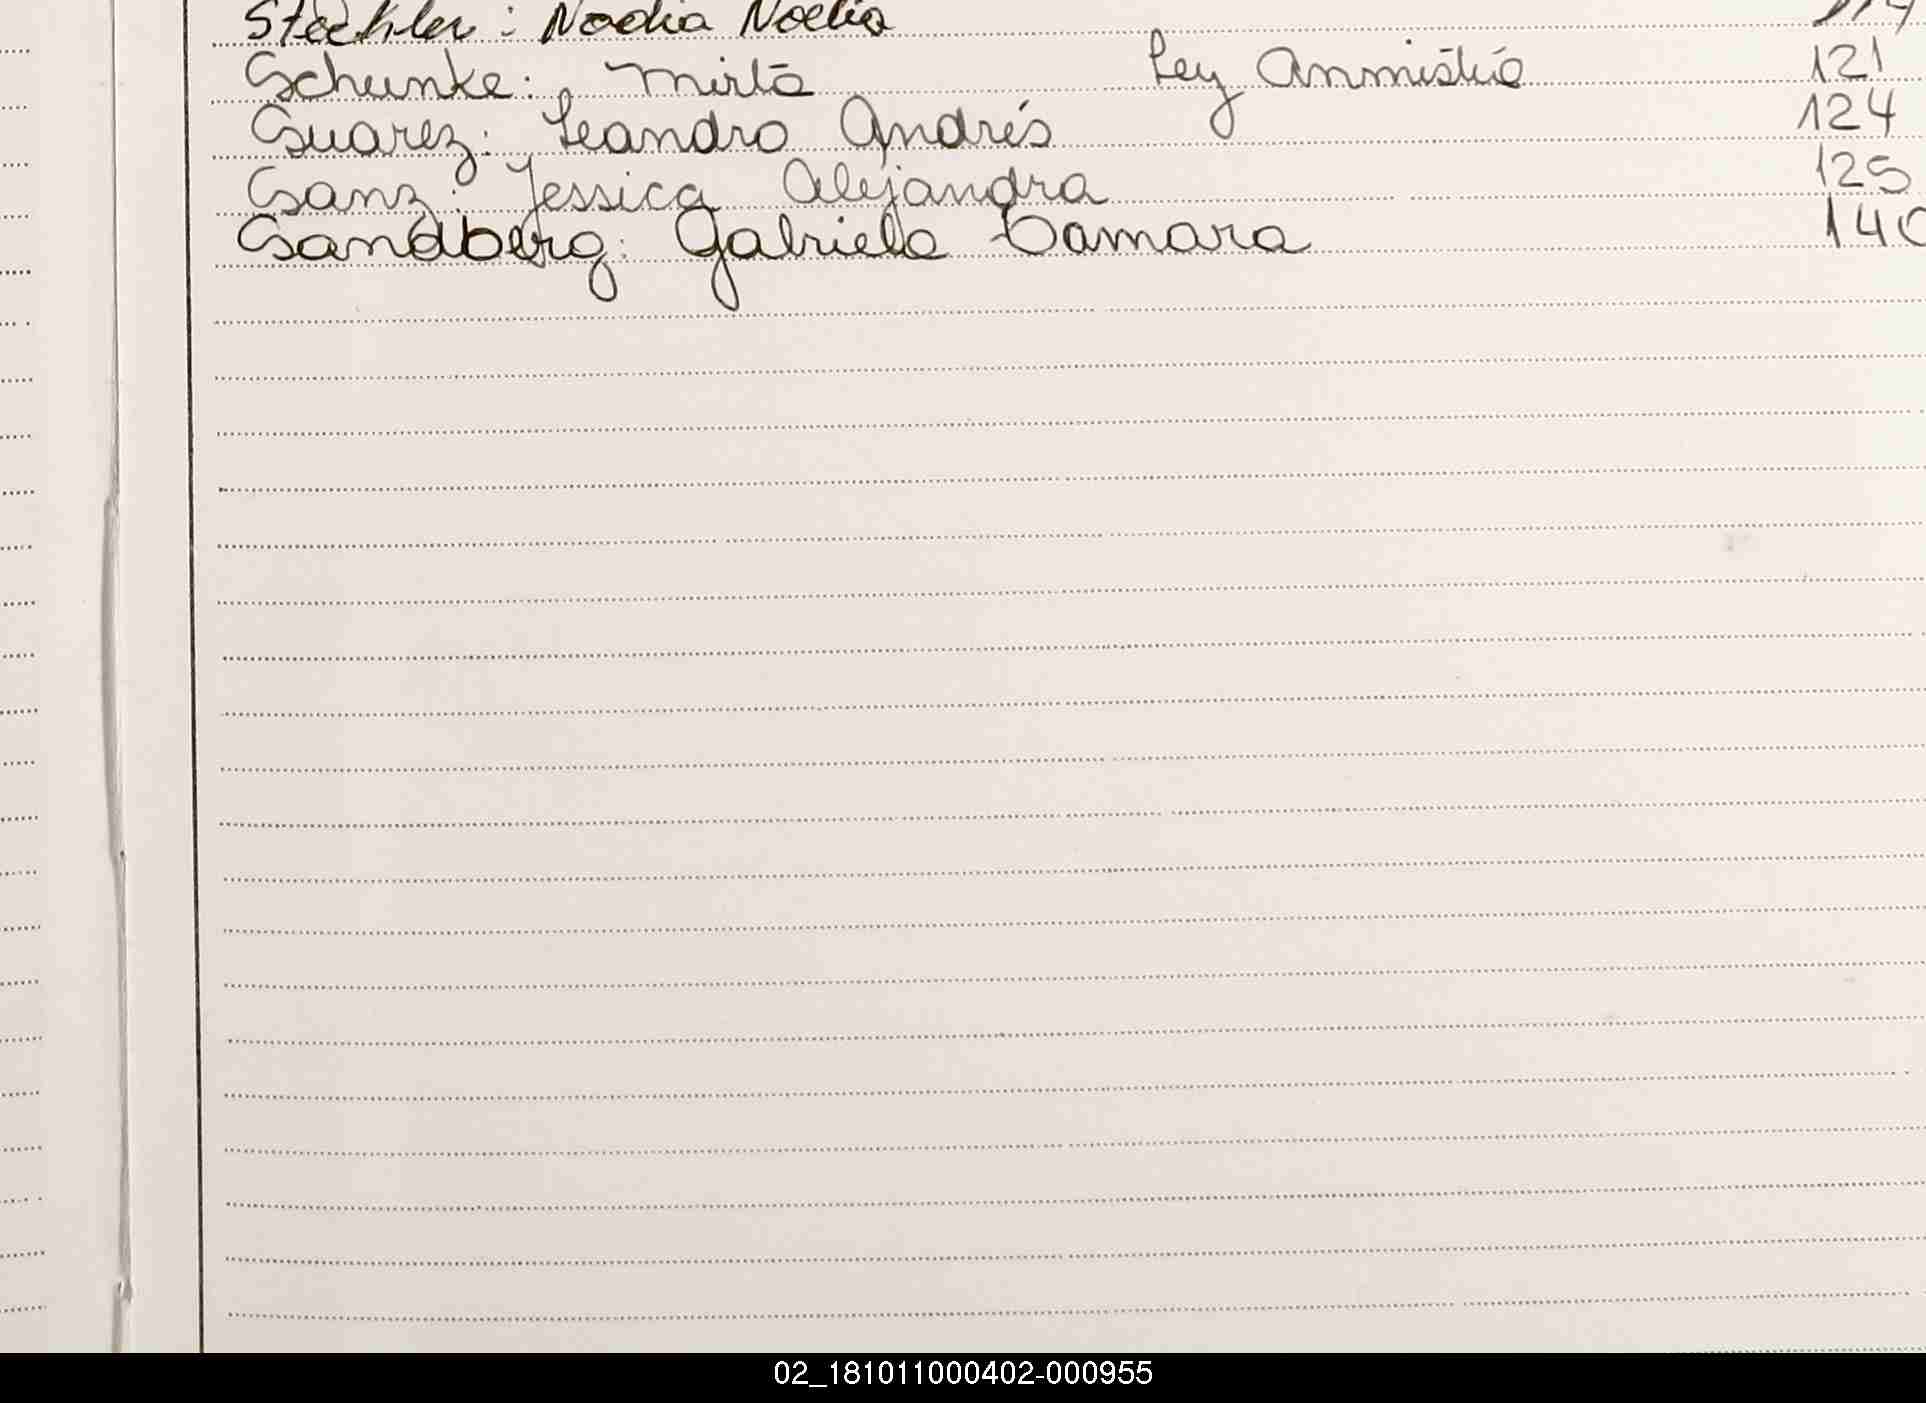 Steckler: Nadia Noelia
Schunke: Mirta Ley Anmistía 121
Suarez: Leandro Andrés 124
Sanz: Jessica Alejandra 125
Sandberg: Gabriela Tamara 140
02_181011000402-000955